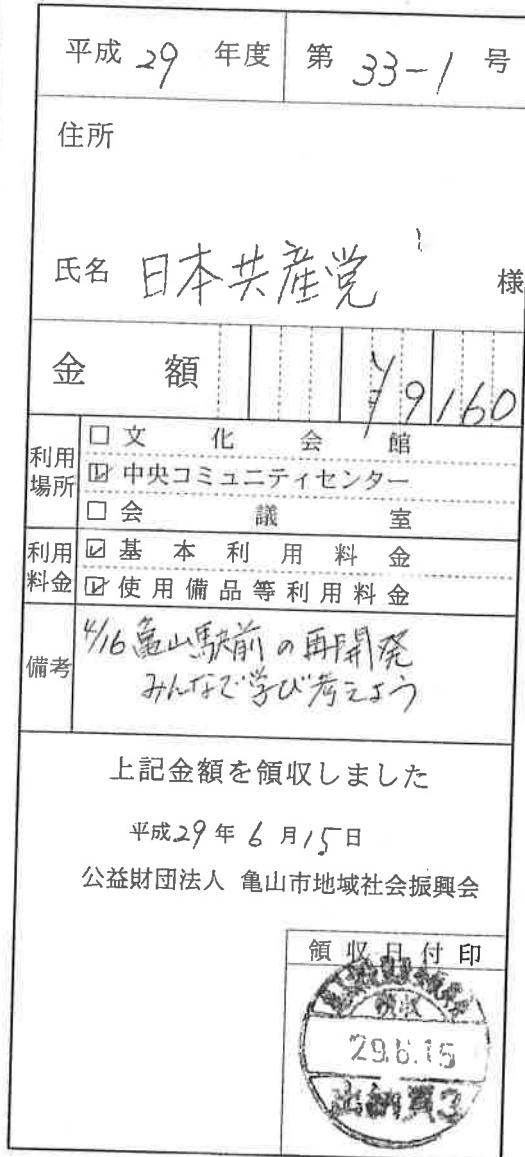 平成 29 年度 第 33-1 号
住所
氏名 日本共産党 様
金 額 ¥9160
利用場所
□ 文化会館
☑ 中央コミュニティセンター
□ 会議室
利用料金
☑ 基本利用料金
☑ 使用備品等利用料金
備考
4/16 亀山駅前の再開発
みんなで学び考えよう
上記金額を領収しました
平成 29 年 6 月 15 日
公益財団法人 亀山市地域社会振興会
領収日付印
領収
29.6.15
出納員3